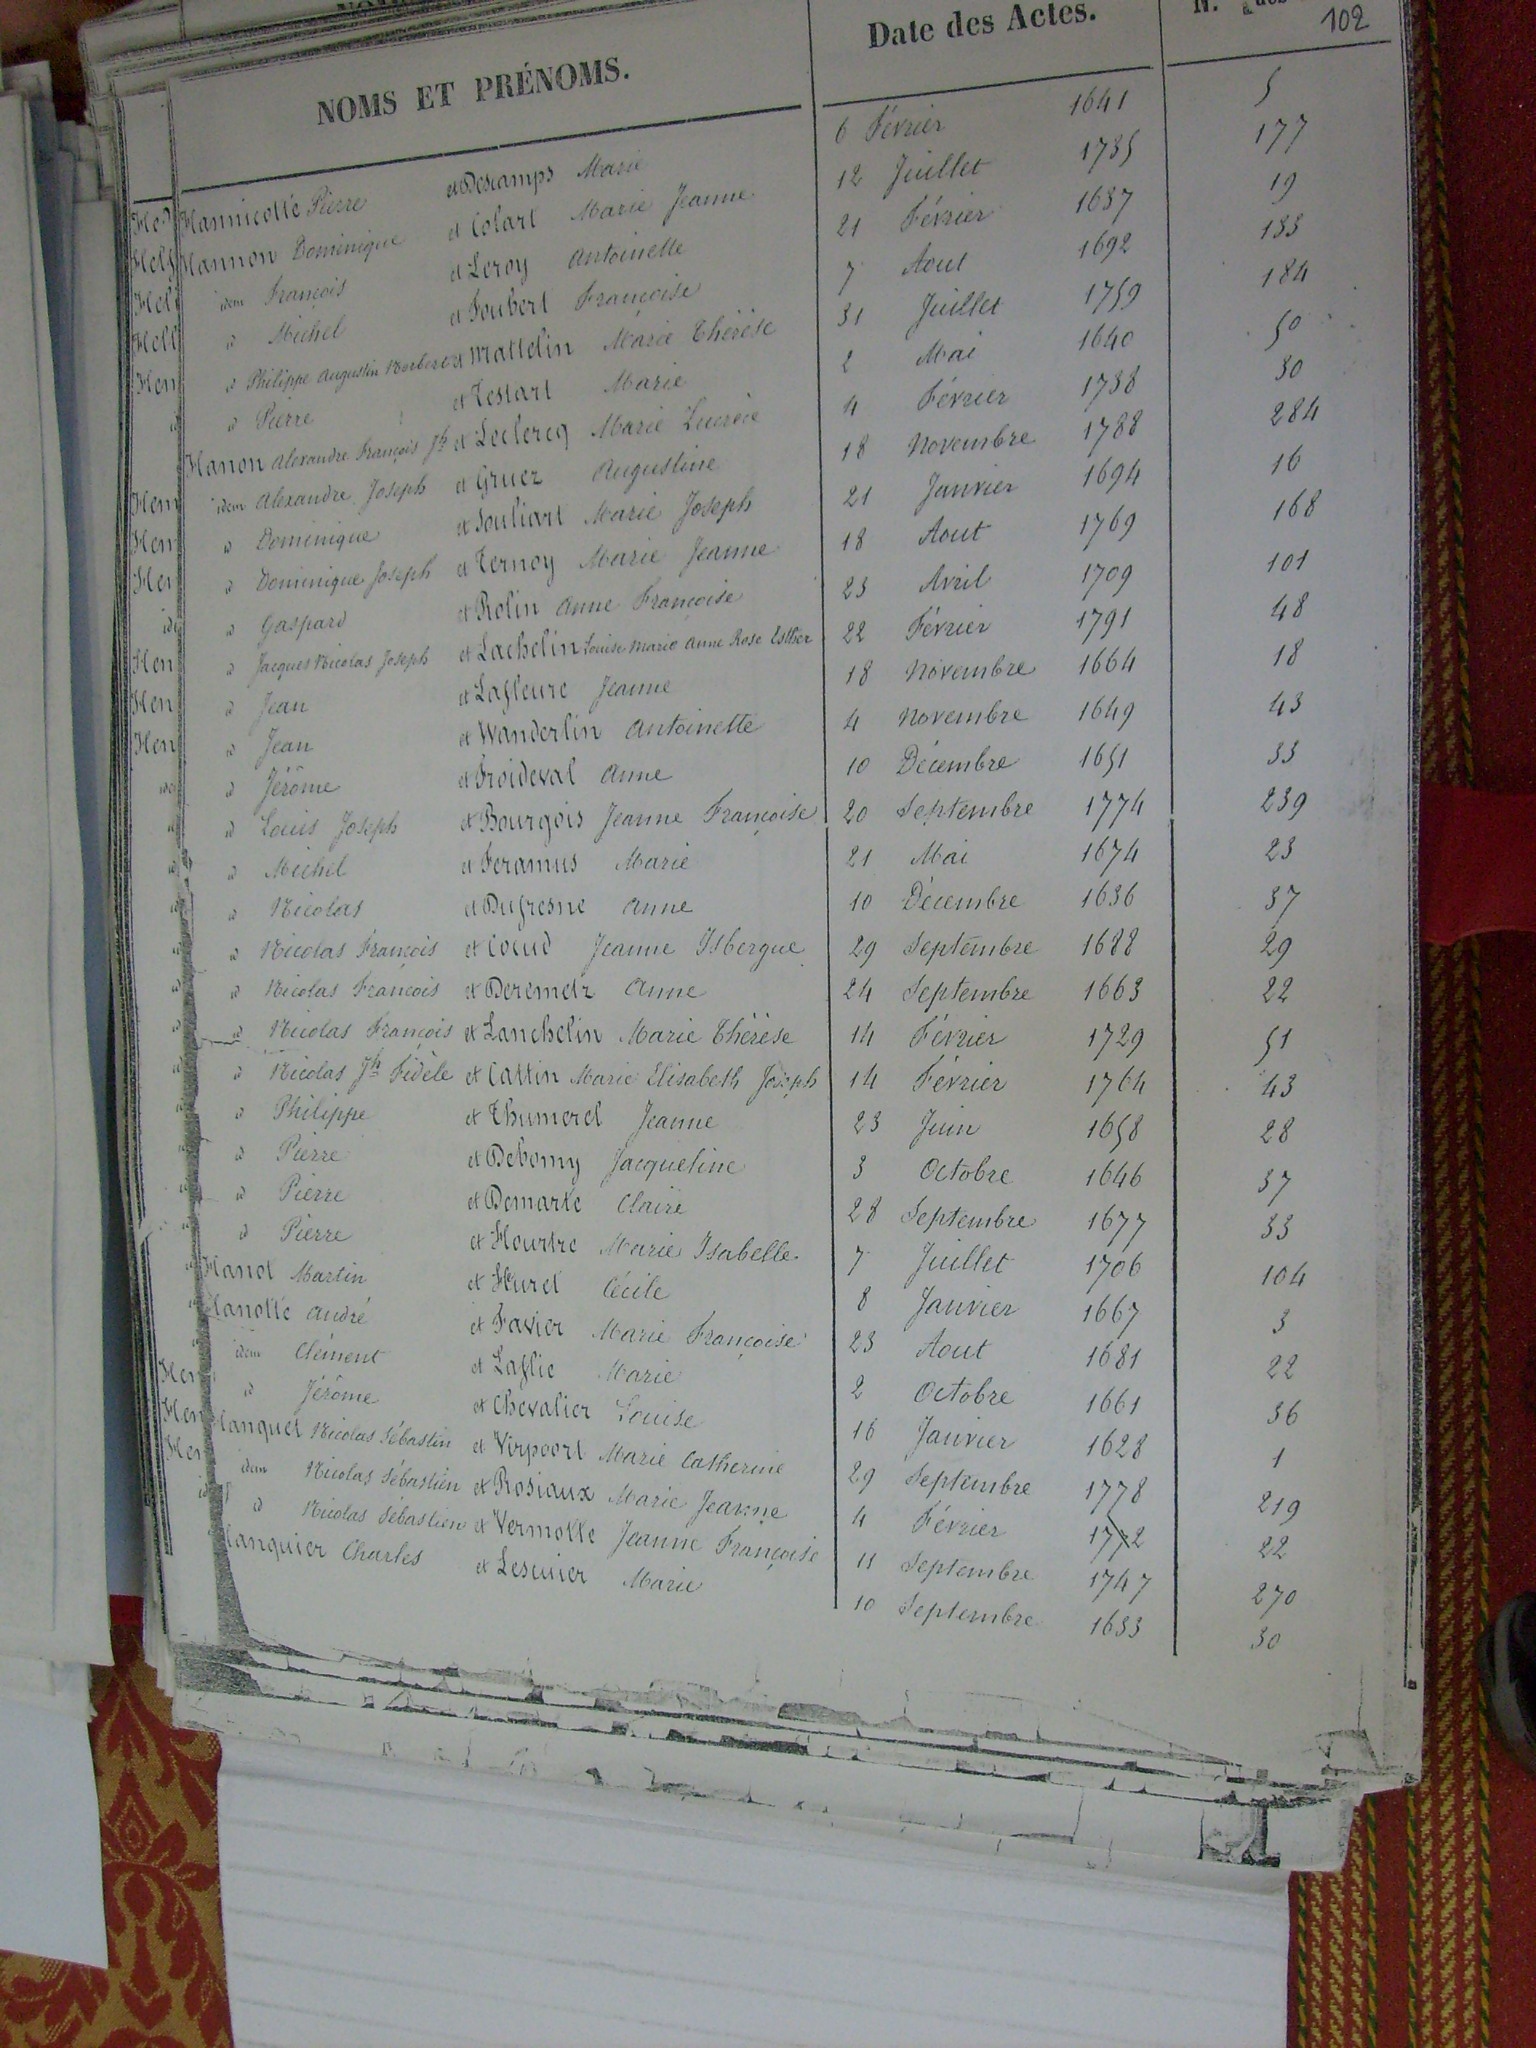 102
NOMS ET PRÉNOMS. Date des Actes. N.
Hannicotte Pierre et Descamps Marie 6 Février 1641 5
Hannon Dominique et Colart Marie Jeanne 12 Juillet 1735 177
idem François et Leroy Antoinette 21 Février 1637 19
d Michel et Joubert Françoise 7 Aout 1692 133
d Philippe Augustin Norbert et Wattelin Marie Thérèse 31 Juillet 1759 184
d Pierre et Testart Marie 2 Mai 1640 50
Hanon Alexandre François Jh et Leclercq Marie Lucrèce 4 Février 1738 30
idem Alexandre Joseph et Gruez Augustine 18 Novembre 1788 284
d Dominique et Souliart Marie Joseph 21 Janvier 1694 16
d Dominique Joseph et Ternoy Marie Jeanne 18 Aout 1769 168
d Gaspard et Rolin Anne Françoise 23 Avril 1709 101
d Jacques Nicolas Joseph et Lachelin Louise Marie Anne Rose Esther 22 Février 1791 48
d Jean et Lafleure Jeanne 18 Novembre 1664 18
d Jean et Wanderlin Antoinette 4 Novembre 1649 43
d Jérôme et Froideval Anne 10 Décembre 1651 33
d Louis Joseph et Bourgois Jeanne Françoise 20 Septembre 1774 239
d Michel et Feramus Marie 21 Mai 1674 23
d Nicolas et Dufresne Anne 10 Décembre 1636 37
d Nicolas François et Coeud Jeanne Isbergue 29 Septembre 1688 29
d Nicolas François et Deremetz Anne 24 Septembre 1663 22
d Nicolas François et Lanchelin Marie Thérèse 14 Février 1729 51
d Nicolas Jh Fidèle et Cattin Marie Elisabeth Joseph 14 Février 1764 43
d Philippe et Thumerel Jeanne 23 Juin 1658 28
d Pierre et Debomy Jacqueline 3 Octobre 1646 37
d Pierre et Demarle Claire 28 Septembre 1677 33
d Pierre et Heurtre Marie Isabelle 7 Juillet 1706 104
Hanot Martin et Hurel Cécile 8 Janvier 1667 3
Hanotte André et Favier Marie Françoise 23 Aout 1681 22
idem Clément et Laflie Marie 2 Octobre 1661 36
d Jérôme et Chevalier Louise 16 Janvier 1628 1
Hanquet Nicolas Sébastin et Virpoort Marie Catherine 29 Septembre 1778 219
idem Nicolas Sébastien et Rosiaux Marie Jeanne 4 Février 1772 22
d Nicolas Sébastien et Vermolle Jeanne Françoise 11 Septembre 1747 270
Hanquier Charles et Lesunier Marie 10 Septembre 1633 30